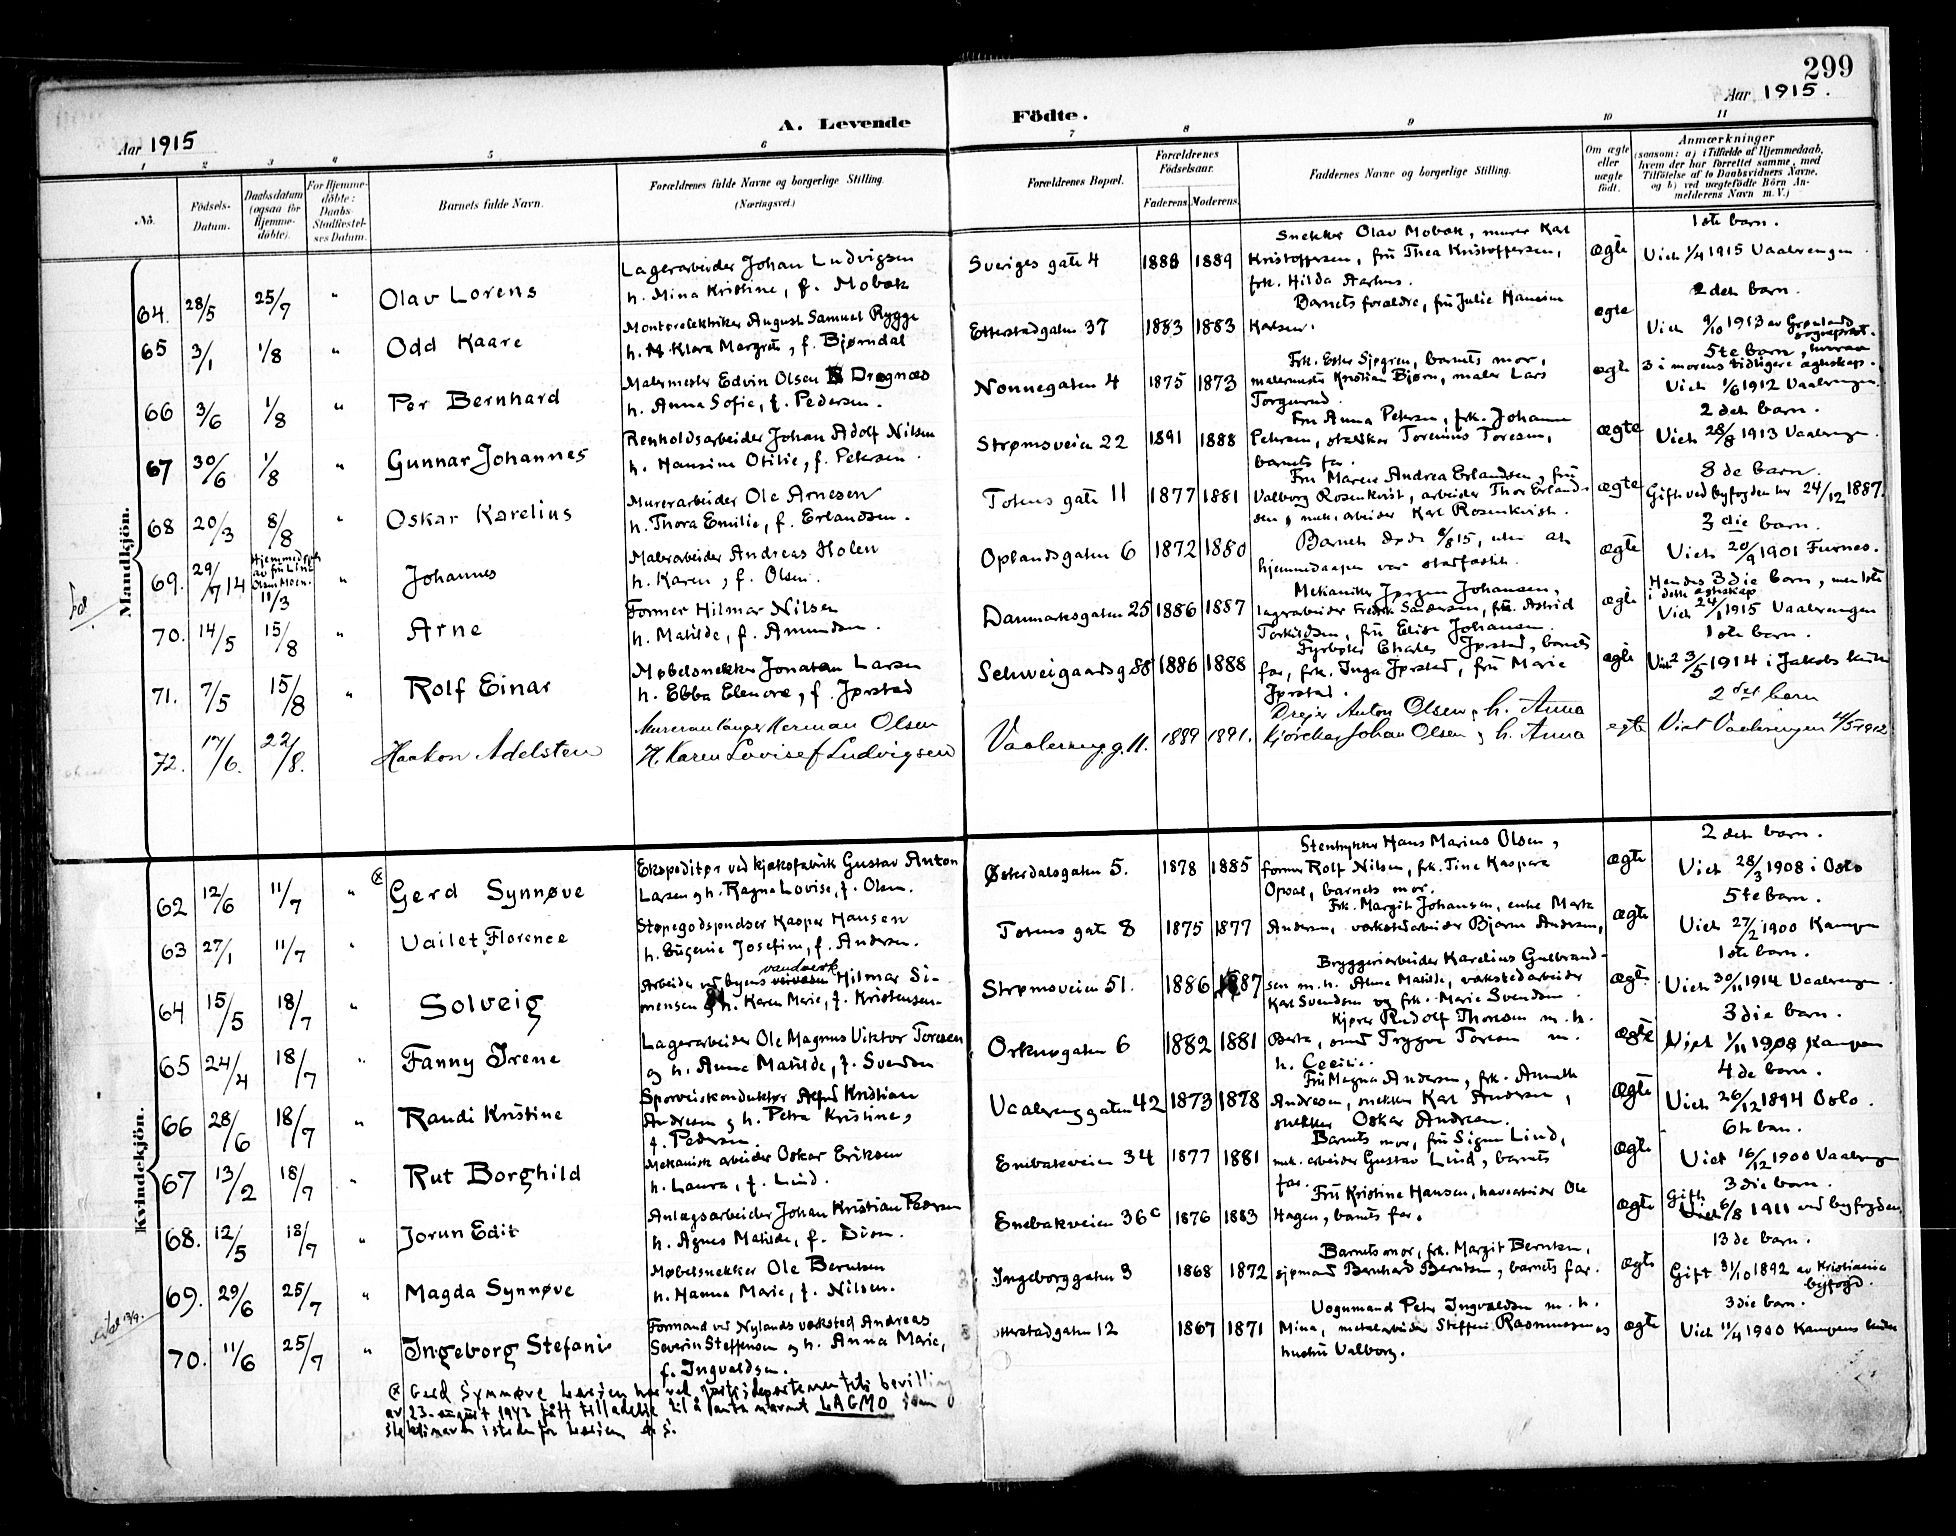 299
Aar 1915
Aar 1915.
A. Levende Födte.
1 2 3 4 5 6 7 8 9 10 11
No.
Födsels-
Datum.
Daabsdatum
(ogsaa for
Hjemme-
døbte).
For Hjemme-
döbte:
Daabs-
Stadfæstel-
ses Datum.
Barnets fulde Navn.
Forældrenes fulde Navne og borgerlige Stilling.
(Næringsvei.)
Forældrenes Bopæl.
Forældrenes
Fødselsaar.
Faderens. Moderens.
Faddernes Navne og borgerlige Stilling.
Om ægte
eller
uægte
födt.
Anmærkninger
(saasom: a) i Tilfælde af Hjemmedaab,
hvem der har forrettet samme, med
Tilföielse af to Daabsvidners Navne,
og b) ved uægtefödte Börn An-
melderens Navn m. V.)
Mandkjön.
64. 28/5 25/7 " Olav Lorens
Lagerarbeider Johan Ludvigsen
h. Mina Kristine, f. Mobæk
Sveriges gate 4 1888 1889
Snekker Olav Mobæk, murer Karl
Kristoffersen, fru Thea Kristoffersen,
frk. Hilda Aarhus.
ægte
1ste barn.
Viet 1/4 1915 Vaalerengen.
65 3/1 1/8 " Odd Kaare
Montørelektriker August Samuel Rygge
h. Klara Margrete, f. Bjørndal
Etterstadgaten 37 1883 1883
Barnets forældre, fru Julie Hansine
Karlsen.
ægte
2det barn.
Viet 9/10 1913 av Grønlands
sogneprest.
66 3/6 1/8 " Per Bernhard
Malermester Edvin Olsen Dragnæs
h. Anna Sofie, f. Pedersen.
Nonnegaten 4 1875 1873
Frk. Ester Sjøgren, barnets mor,
malermester Kristian Bjørn, maler Lars
Torgunrud.
ægte
5te barn, hvorav
3 i morens tidligere egteskap.
Viet 1/6 1912 Vaalerengen.
67 30/6 1/8 " Gunnar Johannes
Renholdsarbeider Johan Adolf Nilsen
h. Hansine Otilie, f. Petersen.
Strømsveien 22 1891 1888
Fru Anna Petersen, frk. Johanne
Petersen, Torenius Toresen,
barnets far.
ægte
2det barn.
Viet 28/8 1913 Vaalerengen.
68 20/3 8/8 " Oskar Karelius
Murerarbeider Ole Arnesen
h. Thora Emilie, f. Erlandsen.
Totens gate 11 1877 1881
Fru Maren Andrea Erlandsen, fru
Valborg Rosenkvist, arbeider Thor Erland-
sen, mek. arbeider Karl Rosenkvist.
ægte
8de barn.
Gift ved byfogden her 24/12 1887.
69. 29/7 14 Hjemmedøpt
av fru Line
Olsen Moen.
11/3 " Johannes
Malerarbeider Andreas Holen
h. Karen, f. Olsen.
Oplandsgaten 6 1872 1880
Barnet døde 9/8 15, uten at
hjemmedaapen var stadfæstet.
ægte
3die barn.
Viet 20/9 1901 Furnes.
70. 14/5 15/8 " Arne
Former Hilmar Nilsen
h. Matilde, f. Amundsen.
Danmarksgaten 25 1886 1887
Mekaniker Jørgen Johansen,
lagerarbeider Fredrik Sandersen, frk. Astrid
Torkildsen, fru Elise Johansen.
ægte
Hendes 3die barn, men 1ste
i dette egteskap
Viet 24/1 1915 Vaalerengen
71. 7/5 15/8 " Rolf Einar
Møbelsnekker Jonatan Larsen
h. Ebba Elenore, f. Jørstad
Schweigaardsg 88 1886 1888
Fyrbøter Charles Jørstad, barnets
far, frk. Inga Jørstad, fru Marie
Jørstad.
ægte
1ste barn.
Viet 23/5 1914 i Jakobs kirke
72. 17/6. 22/8. Haakon Adelsten
Herman Olsen
H. Karen Lovise f Ludvigsen
Vaalerengg. 11. 1889 1891.
Drejer Anton Olsen, h. Anna
kjørekar Johan Olsen, h. Anna
egte
2det barn
Viet Vaalerengen 11/5 1912
Kvindekjön.
62 12/6 11/7 " (x) Gerd Synnøve
Ekspeditør ved kjeksfabrik Gustav Anton
Larsen og h. Ragna Lovise, f. Olsen.
Østerdalsgaten 5. 1878 1885
Stenhugger Hans Marius Olsen,
former Rolf Nilsen, frk. Tine Kaspara
Opsal, barnets mor.
ægte
2det barn.
Viet 28/3 1908 i Oslo
63 27/1 11/7 " Vailet Florence
Støpegodspudser Kasper Hansen
h. Eugenie Josefine, f. Andersen.
Totens gate 8 1875 1877
Frk. Margit Johansen, enke Marta
Andersen, verkstedarbeider Bjarne Andersen,
ægte
5te barn.
Viet 27/2 1900 Kampen
64 15/5 18/7 " Solveig
Arbeider ved byens vandverk Hilmar Si-
monsen og h. Karen Marie, f. Kristensen.
Strømsveien 51. 1886 1887
Bryggeriarbeider Karelius Gulbrand-
sen m. h. Alma Matilde, verkstedarbeider
Karl Svendsen og frk. Marie Svendsen.
ægte.
1ste barn.
Viet 30/11 1914 Vaalerengen.
65 24/4 18/7 " Fanny Irene
Lagerarbeider Ole Magnus Viktor Toresen
og h. Anna Matilde, f. Svendsen
Orknøgaten 6 1882 1881
Kjører Rudolf Thoresen m. h.
Berta, Trygve Toresen m.
h. Cecilie.
ægte
3die barn.
Viet 1/11 1908 Kampen
66 28/6 18/7 " Randi Kristine
Sporveiskonduktør Alfred Kristian
Andresen og h. Petra Kristine,
f. Pedersen
Vaalerenggaten 42 1873 1878
Fru Magna Andersen, frk. Anneth
Andresen, snekker Karl Andersen,
snekker Oskar Andresen.
ægte
4de barn.
Viet 26/12 1894 Oslo.
67 13/2 18/7 " Rut Borghild
Mekanisk arbeider Oskar Eriksen
h. Laura, f. Lind.
Enebakveien 34 1877 1881
Barnets mor, fru Signe Lind,
mek. arbeider Gustav Lind, barnets
far.
ægte
6te barn.
Viet 16/12 1900 Vaalerengen
68. 12/5 18/7 " Jorun Edit
Anlægsarbeider Johan Kristian Pedersen
h. Agnes Matilde, f. Disen.
Enebakveien 36c 1876 1883
Fru Kristine Hansen, havearbeider Ole
Hagen, barnets far.
ægte
3die barn.
Gift 6/8 1911 ved byfogden
69. 29/6 25/7 " Magda Synnøve
Møbelsnekker Ole Berntsen
h. Hanna Marie, f. Nilsen.
Ingeborggaten 3 1868 1872
Barnets mor, frk. Margit Berntsen,
sjømand Bernhard Berntsen, barnets far.
ægte
13de barn.
Gift 31/10 1892 av Kristiania
byfogd.
70. 11/6 25/7 " Ingeborg Stefanie
Formand ved Nylands verksted Andreas
Severin Steffensen og h. Anna Marie,
f. Ingvaldsen.
Etterstadgaten 12 1867 1871
Vognmand Peter Ingvaldsen m. h.
Mina, metalarbeider Steffen Rasmussen og
hustru Valborg.
ægte
3die barn.
Viet 11/4 1900 Kampens kirke
(x) Gerd Synnøve Larsen har ved justisdepartementets bevilling
av 23. august 1943 fått tilladelse til å anta navnet LAGMO som
slektsnavn istedenfor Larsen.